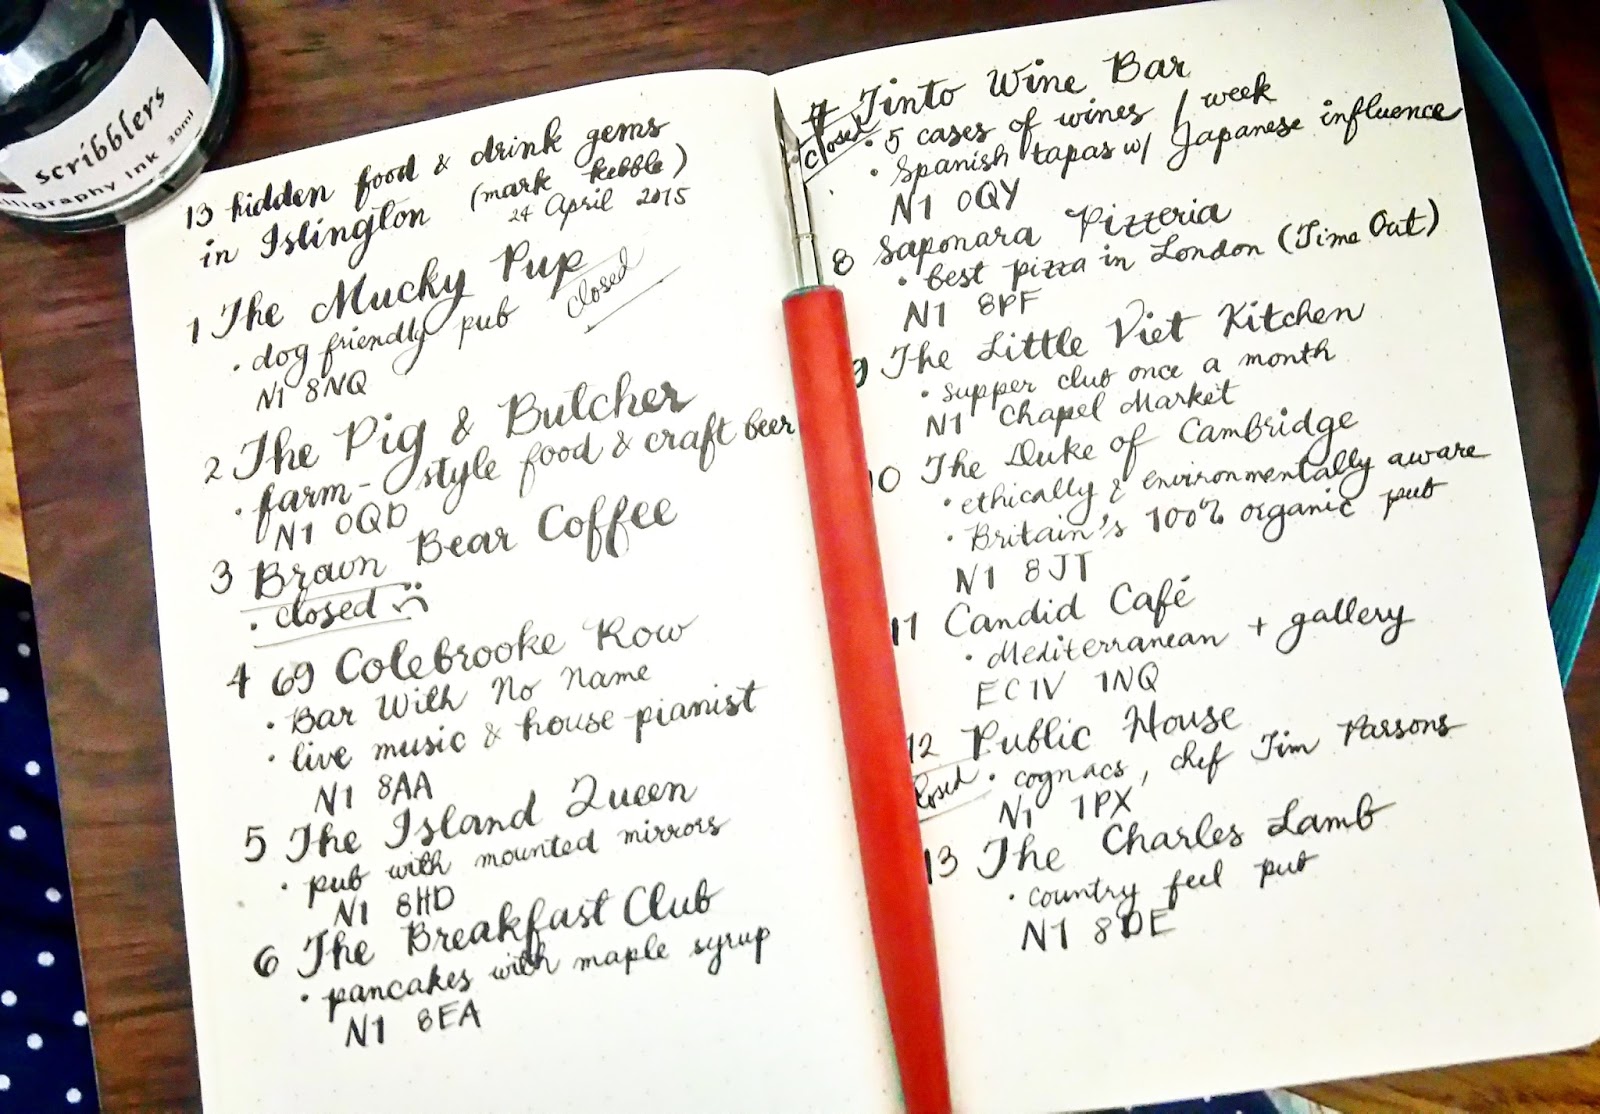 scribblers
calligraphy ink 30ml
13 hidden food & drink gems
in Islington (mark kebble)
24 April 2015
1 The Mucky Pup
· dog friendly pub closed
N1 8NQ
2 The Pig & Butcher
· farm-style food & craft beer
N1 0QD
3 Brown Bear Coffee
· closed :(
4 69 Colebrooke Row
· Bar With No Name
· live music & house pianist
N1 8AA
5 The Island Queen
· pub with mounted mirrors
N1 8HD
6 The Breakfast Club
· pancakes with maple syrup
N1 8EA
7 Tinto Wine Bar
closed · 5 cases of wines / week
· Spanish tapas w/ Japanese influence
N1 0QY
8 Saponara Pizzeria
· best pizza in London (Time Out)
N1 8PF
9 The Little Viet Kitchen
· supper club once a month
N1 Chapel Market
10 The Duke of Cambridge
· ethically & environmentally aware
· Britain's 100% organic pub
N1 8JT
11 Candid Café
· Mediterranean + gallery
EC1V 1NQ
12 Public House
closed · cognacs, chef Tim Parsons
N1 1PX
13 The Charles Lamb
· country feel pub
N1 8DE